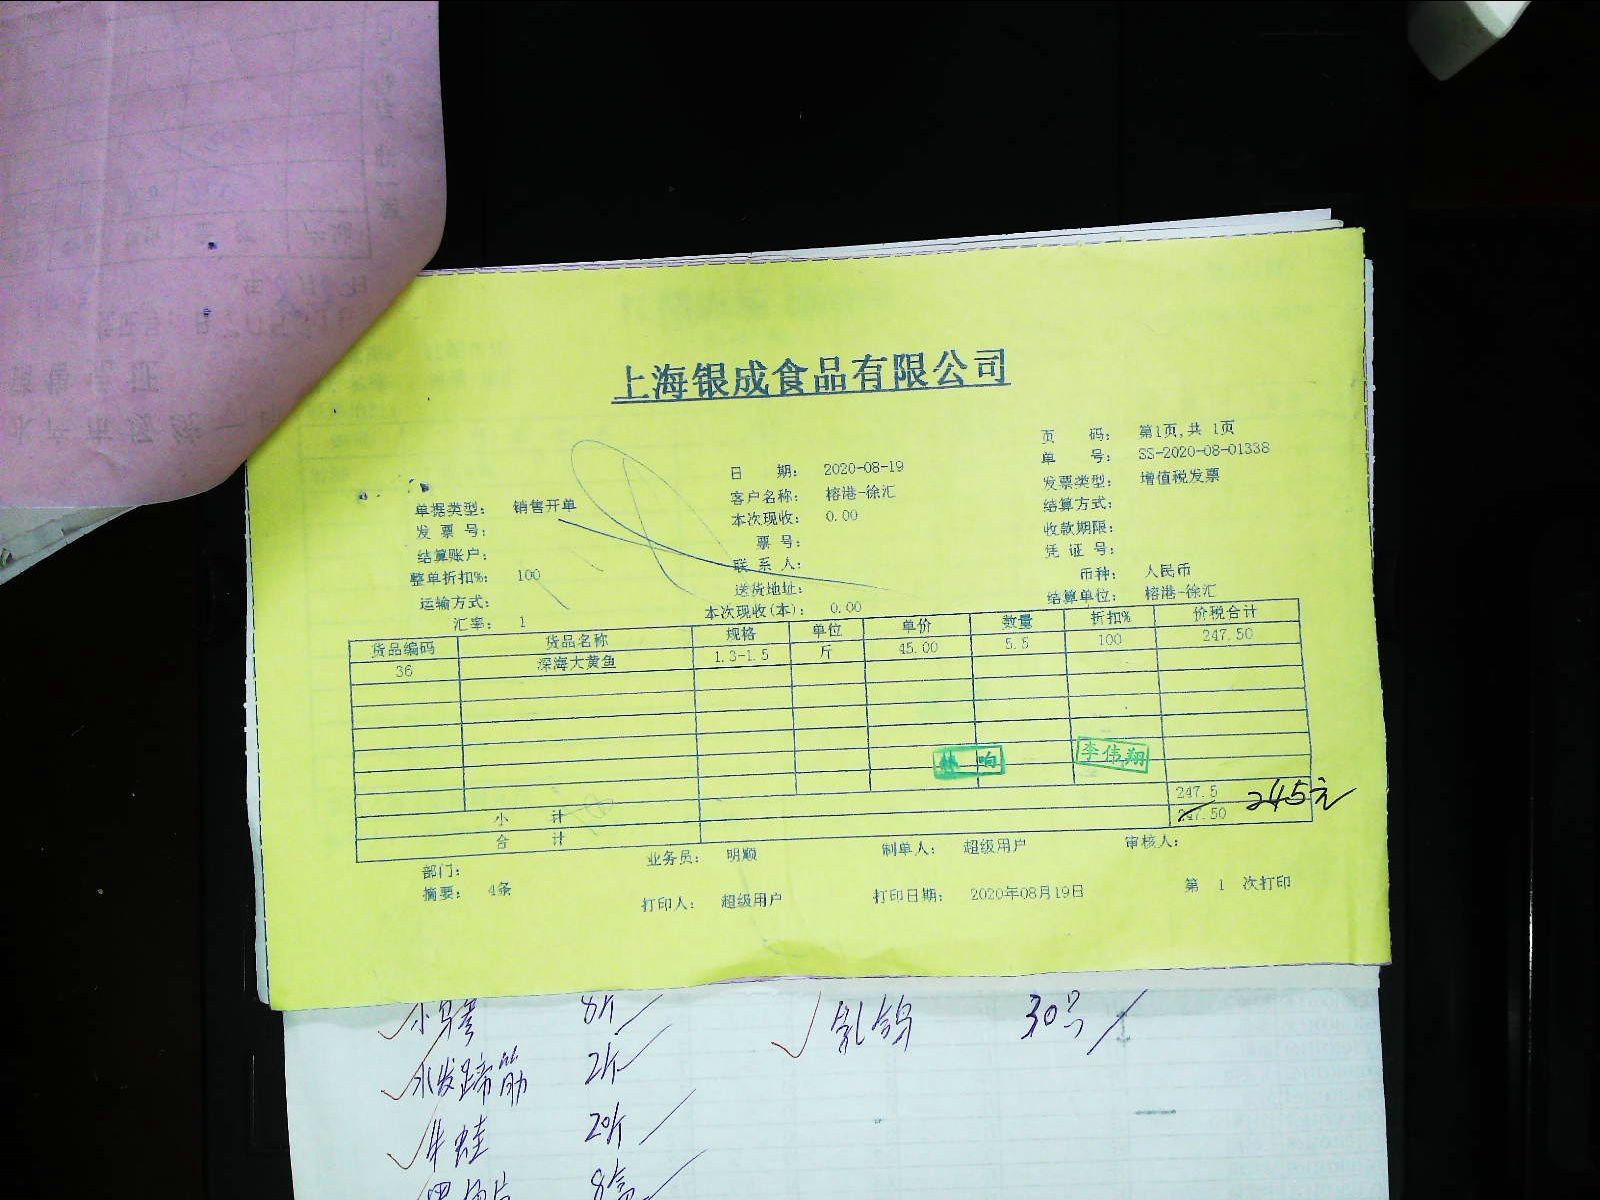 上海银成食品有限公司
页 码： 第1页,共 1页
单 号： SS-2020-08-01338
日 期： 2020-08-19
发票类型： 增值税发票
客户名称： 榕港-徐汇
结算方式：
单据类型： 销售开单
本次现收： 0.00
收款期限：
发 票 号：
票 号：
凭 证 号：
结算账户：
联 系 人：
币种： 人民币
整单折扣%： 100
送货地址：
结算单位： 榕港-徐汇
运输方式：
本次现收(本)： 0.00
汇率： 1
货品编码 货品名称 规格 单位 单价 数量 折扣% 价税合计
36 深海大黄鱼 1.3-1.5 斤 45.00 5.5 100 247.50
响 李伟翔
小 计 247.5 245元
合 计 247.50
部门： 业务员： 明顺 制单人： 超级用户 审核人：
摘要： 4条 打印人： 超级用户 打印日期： 2020年08月19日 第 1 次打印
8斤 乳鸽 30只
水发蹄筋 2斤
牛蛙 20斤
8盒